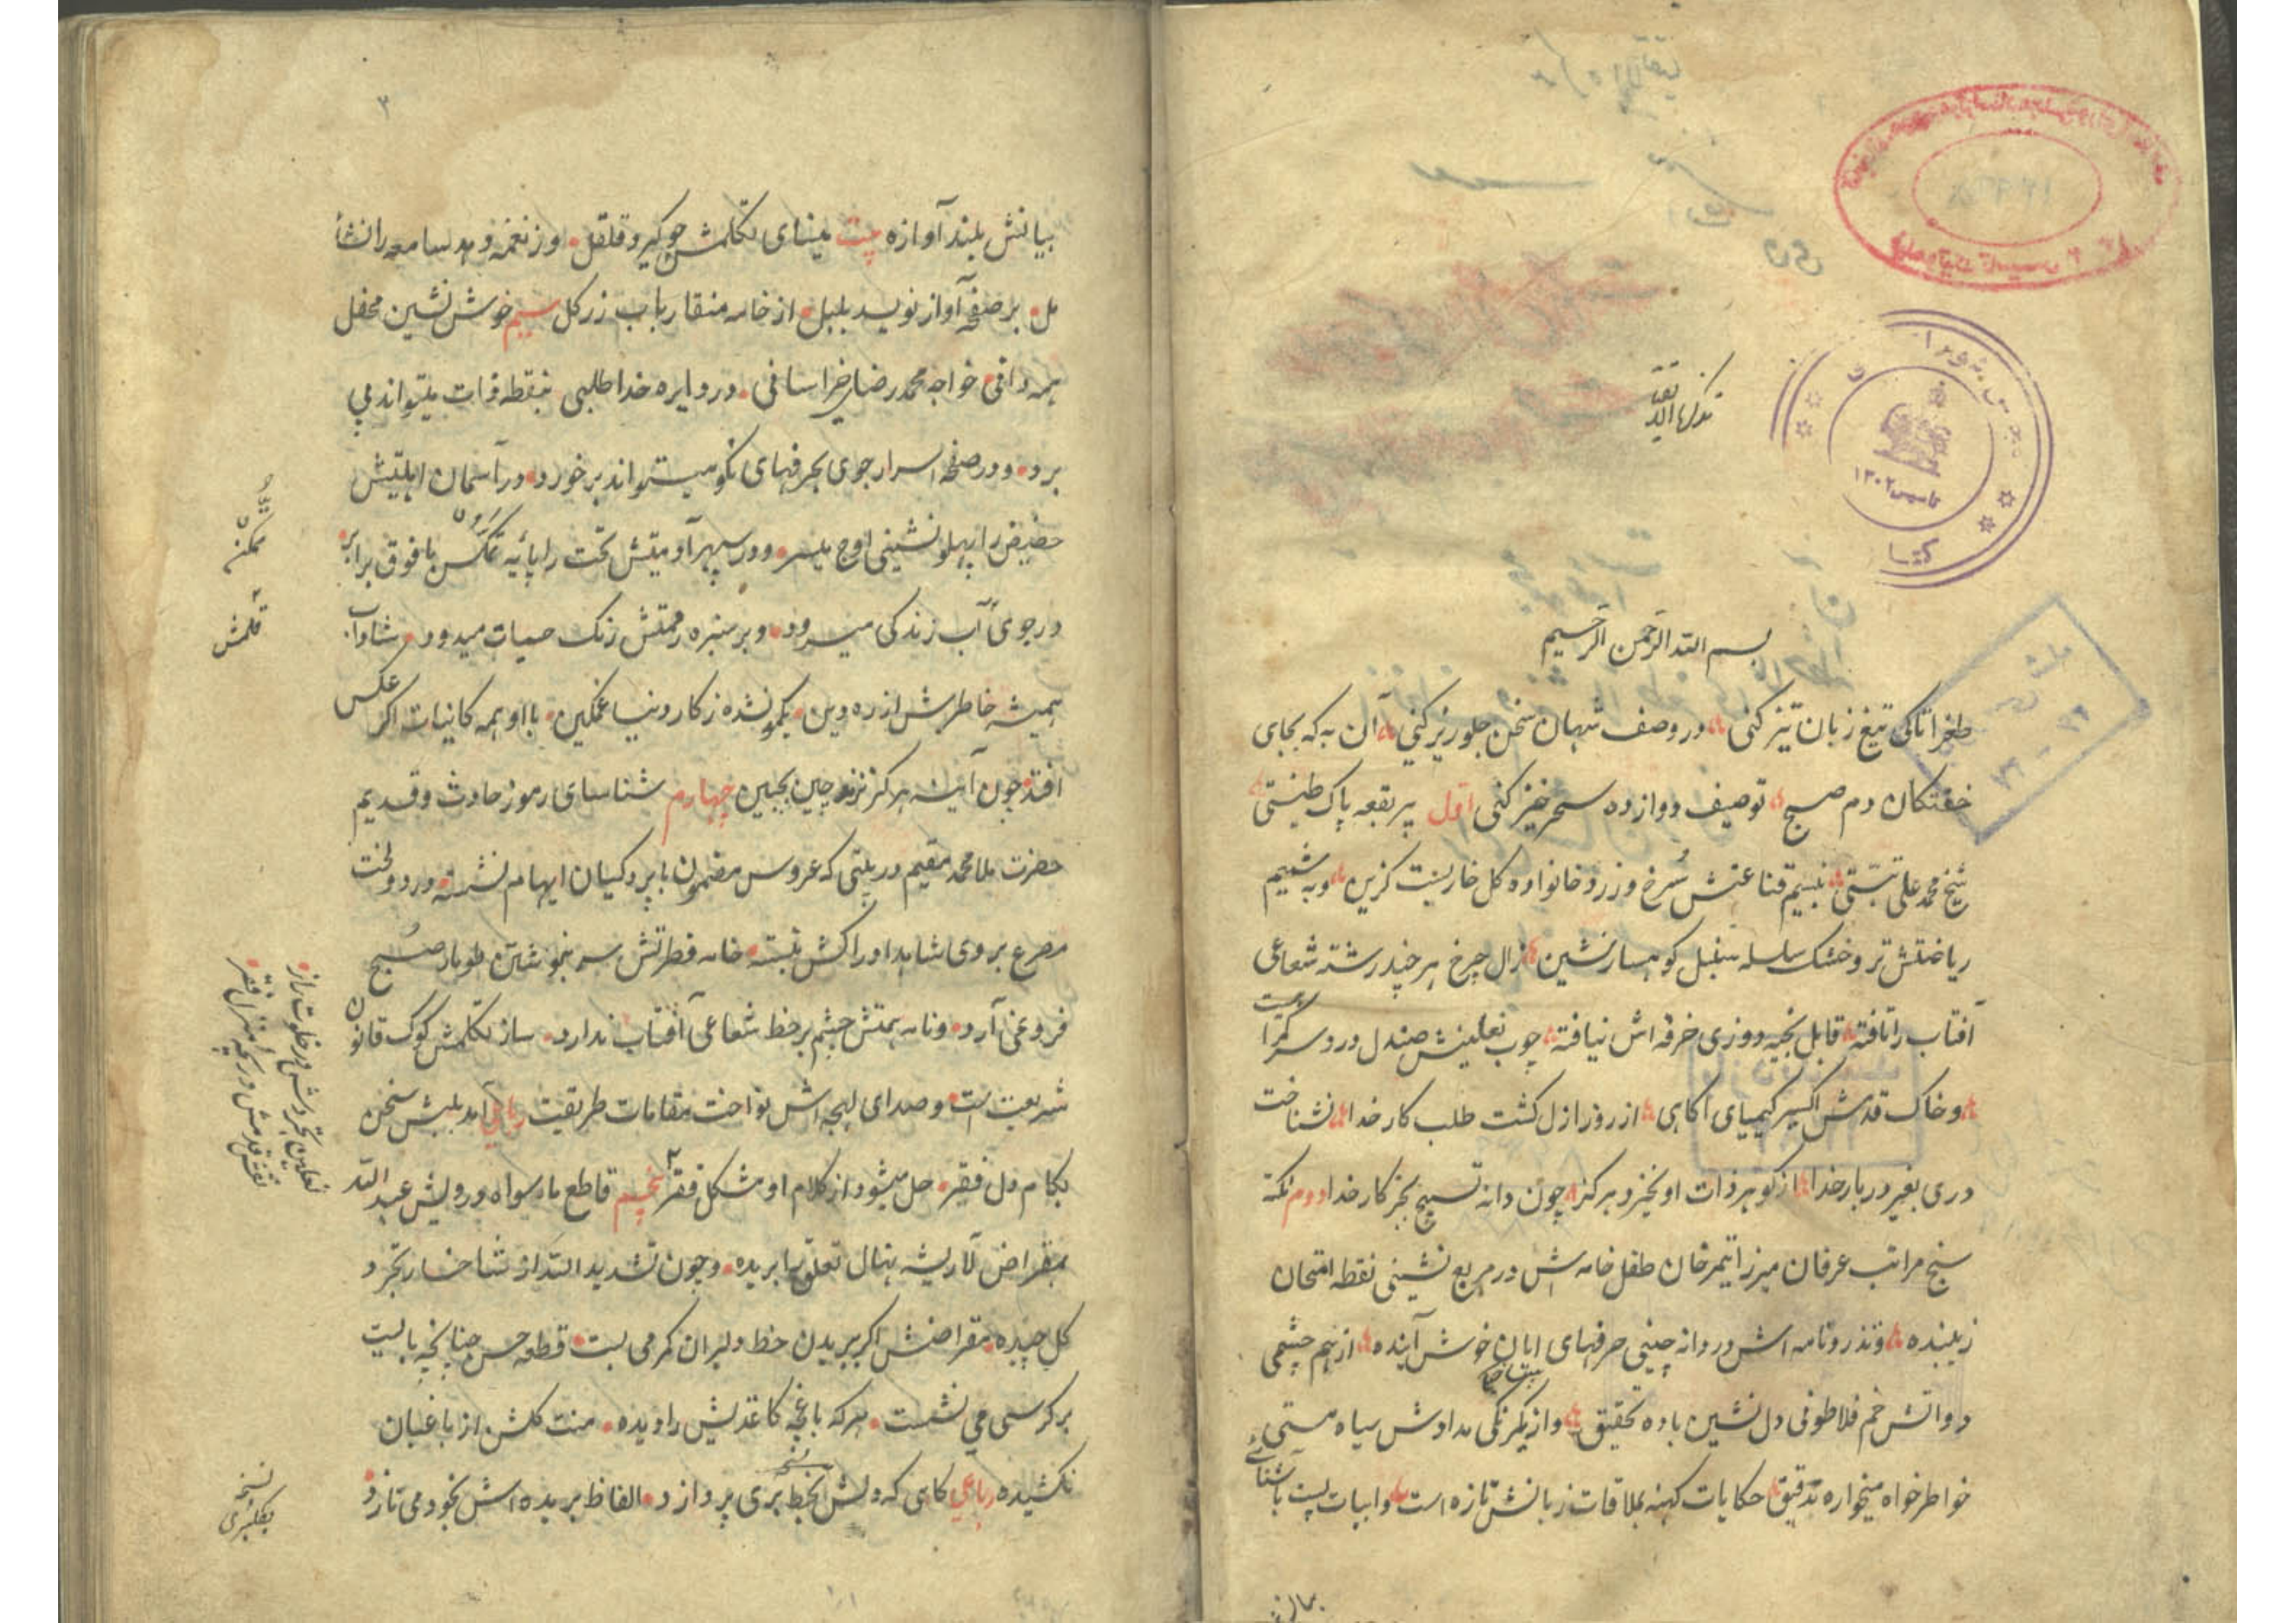 تذکرة الاتقیا
بسم الله الرحمن الرحیم
طغرا تا کی تیغ زبان تیز کنی در وصف شهان سخن جلوریز کنی آن به که بجای
خفتکان دم صبح توصیف دوازده سحرخیز کنی اول پیر بقعه پاک طینتی
شیخ محمد علی تبتی بنسیم قناعتش سرخ و زرد خانواده کل خاربست کزین و به شمیم
ریاضتش تر و خشک سلسله سنبل کوهسار نشین زال چرخ هر چند رشته شعاعی
آفتاب را تافته قابل بخیه دوزی خرقه اش نیافته چوب نعلینش صندل درد سر کمراهیست
و خاک قدمش اکسیر کیمیای آکاهی از روز ازل کشت طلب کار خدا نشناخت
دری بغیر دربار خدا از کوهر ذات او نخیزد هرکز چون دانه تسبیح بجز کار خدا دوم نکته
سنج مراتب عرفان میرزا تیمرخان طفل خامه ش در مربع نشینی نقطه امتحان
زیبنده و تذرو نامه اش در دانه چینی حرفهای خوش آینده از هم چشمی
دواتش خم فلاطونی دل نشین باده تحقیق و از یکرنکی مدادش سیاه مستی
خواطرخواه میخواره تدقیق حکایات کهنه بملاقات زبانش تازه است و ابیات پست باشنائی
بیانش
۳
بیانش بلند آوازه بیت مینای تکلمش چو کیرد قلقل از نغمه دهد سامعه را نشأ
مل بر صفحه آواز نویسد بلبل از خامه منقار بآب زر کل سیم خوش نشین محفل
همه دانی خواجه محمد رضای خراسانی در دایره خدا طلبی بنقطه ذات میتواند پی
برد و در صفحه اسرار جوی بحرفهای نکو میتواند برخورد در آسمان اهلیتش
حضیض را پهلو نشینی اوج میسر و در سپهر آدمیتش تحت را پائیه با فوق برابر
در جوی آب زندکی میرود و بر سبزه رحمتش رنک حیات میدود شاداب
همیشه خاطرش از ره دین یکمو نشده ز کار دنیا غمکین با او همه کاینات اکر عکس
افتد چون آینه هرکز نزند چین بجبین چهارم شناسای رموز حادث و قدیم
حضرت ملا محمد مقیم در بیتی که عروس مضمون با پردکیان ایهام نشسته در دولخت
مصرع بروی شاهد ادراکش نبسته خامه فطرتش سر بنوشتن طومار صبح
فرو نمی آرد و نامه همتش چشم بر خط شعاعی آفتاب ندارد ساز تکلمش کوک قانون
شریعت است و صدای لهجه اش نواخت مقامات طریقت رباعی آمد بلبش سخن
بکام دل فقیر حل میشود از کلام او مشکل فقر پنجم قاطع ماسواه درویش عبد الله
بمقراض لا ریشه نهال تعلق را بریده و چون تشدید الله از شاخسار تجرد
کل چیده مقراضش اکر ببریدن خط دلبران کرمی بست قطعه حسن چنانچه بایست
بر کرسی می نشست هر که باغچه کاغذیش را دیده منت کلش از باغبان
نکشیده رباعی کاهی که دلش بخط بری پردازد الفاظ بریده اش بخود می نازد
تمکن
قلمش
نعلین تجردش در خلوت راز
نقش قدمش دریچه منزل فقر
نسخه